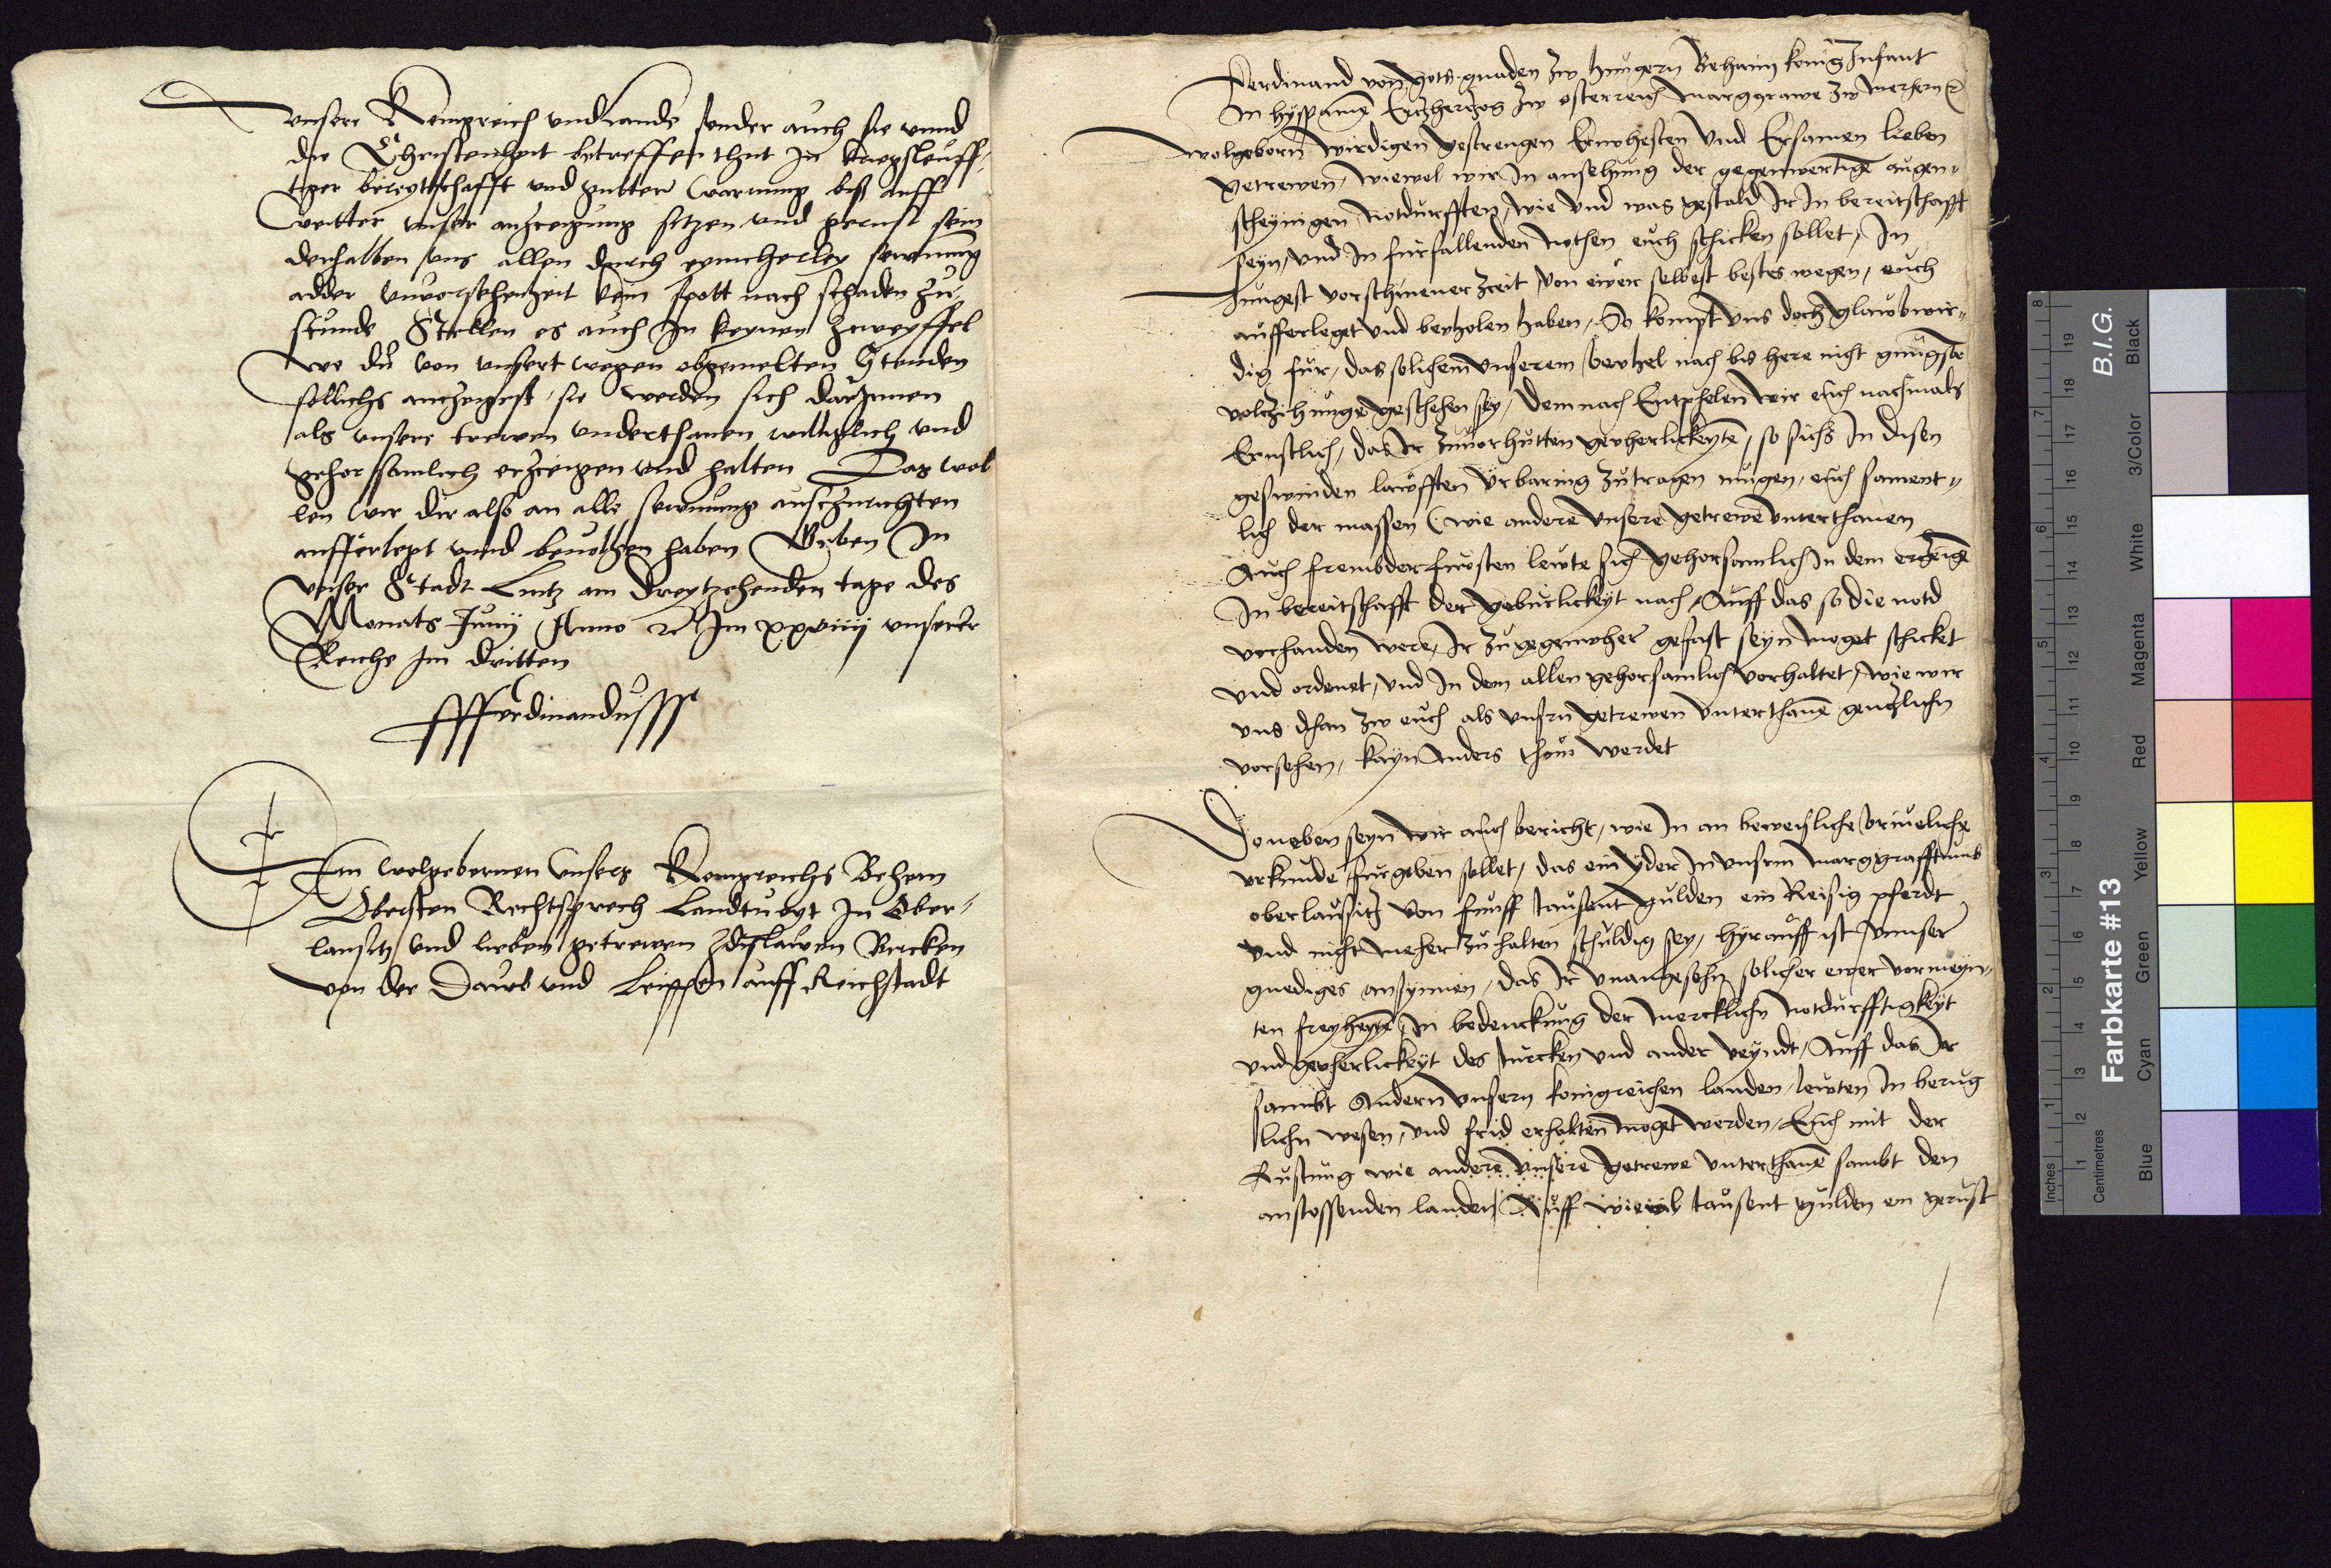 unsere Kongreich und lande sonder auch sie unnd
die Christenheit betreffen thut In kriegsleuff-
tiger bereytschafft und gutter warnung biß auff
weitter unser anzeigung sitzen und gerust sein
derhalben uns allen durch eyncherley sewmung
adder unvorsehenheit kein spott nach schaden zu
stunde Stellen es auch In keynen zweyffel
wo du von unsert wegen obgemelten Stenden
sollichs anzeigest, sie werden sich darinnen
als unsere trewen underthanen williglich und
gehorsamlich erzeigen und halten Das wol
len wir dir also an alle sewmung auszurichten
aufferlegt unnd bevolhen haben Geben In
unser Stadt Lintz am dreytzehenden tage des
Monats Junij Anno &c Im xxviiij unserer
Reiche Im dritten
Ferdinandus
Dem wolgebornen unsers Konigreichs Behem
Obersten Rechtsprech Landtvoyt In Ober-
lausitz und lieben getrewen Zdislawen Bercken
von der Dawb und Leippen auff Reichstadt
Ferdinand von gots gnaden zw hungern Behaim konig Infant
In hyspanie Ertzhertzog zw osterreich marggrawe zw merhern &c
wolgeborn wirdigen gestrengen Ernvhesten und Ersamen lieben
getrewen, wiewol wir In ansehung der gegenwertige augen-
scheynigen notdurfften, wie und was gestald Ir In bereitschafft
seyn, und In furfallenden nothen euch schicken sollet, In
Jungest vorschinener zeit von ewer selbest bestes wegen, euch
aufferleget und bevholen haben, So kompt uns doch glawbwir-
dig fur, das solichem unserem bevhel nach bis here nicht gnugsa
volzihunge geschehen sey, Demnach Entphelen wir euch nachmals
Ernstlich, das Ir zuvorhutten geverlickeyte, so sichs In disen
geswinden lawfften urbaring zutragen mugen, euch sament-
lich der massen (wie andere unsere getrewe unterthanen
Auch frembder fursten lewte sich gehorsamlich In dem erzeige
In bereitschafft der geburlickeyt nach, Auff das so die notd
vorhanden were, Ir zugegenweher gefast seyn moget schicket
und ordenet, und In dem allen gehorsamlich vorhaltet, wie wir
uns dan zw euch als unsern getrewen unterthane gentzlichn
vorsehen, kayn anders thun werdet
Doneben seyn wir auch bericht, wie In an beweisliche brieveliche
urkunde furgeben sollet, das ein yder In unserm marggrafftumb
oberlausitz von funff tausent gulden ein Reisig pferdt
und nicht meher zuhalten schuldig sey, hyrauff ist unnser
gnediges ansynnen, das Ir unangesehn solicher ewer vormeyn-
ten freyheyte, In bedenckung der mercklichn notdurfftigkeyt
und geverlickeyt des turcken und ander veyndt, Auff das Ir
sambt Andern unsern konigreichen landen, lewten In berug
lichn wesen, und frid erhalten moget werden, Euch mit der
Rustung wie andere unsere getrewe unterthane sambt den
anstossenden lander Auff wievil tausent gulden ein gerust
Inches
Centimetres
B.I.G.
Farbkarte #13
Blue
Cyan
Green
Yellow
Red
Magenta
White
3/Color
Black